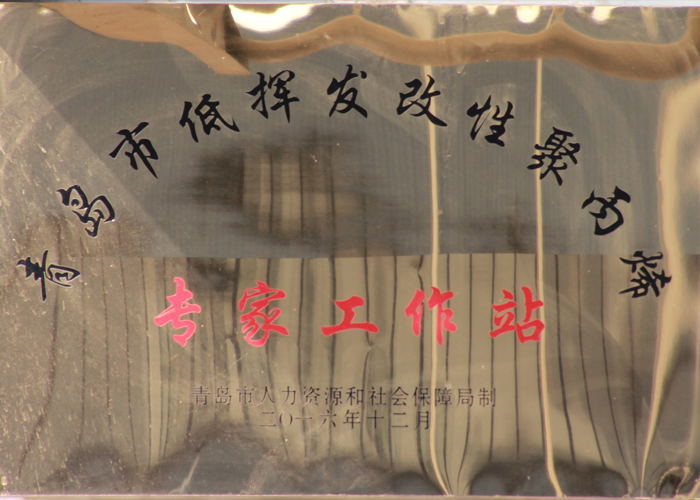 青岛市低挥发改性聚丙烯
专家工作站
青岛市人力资源和社会保障局制
二〇一六年十二月